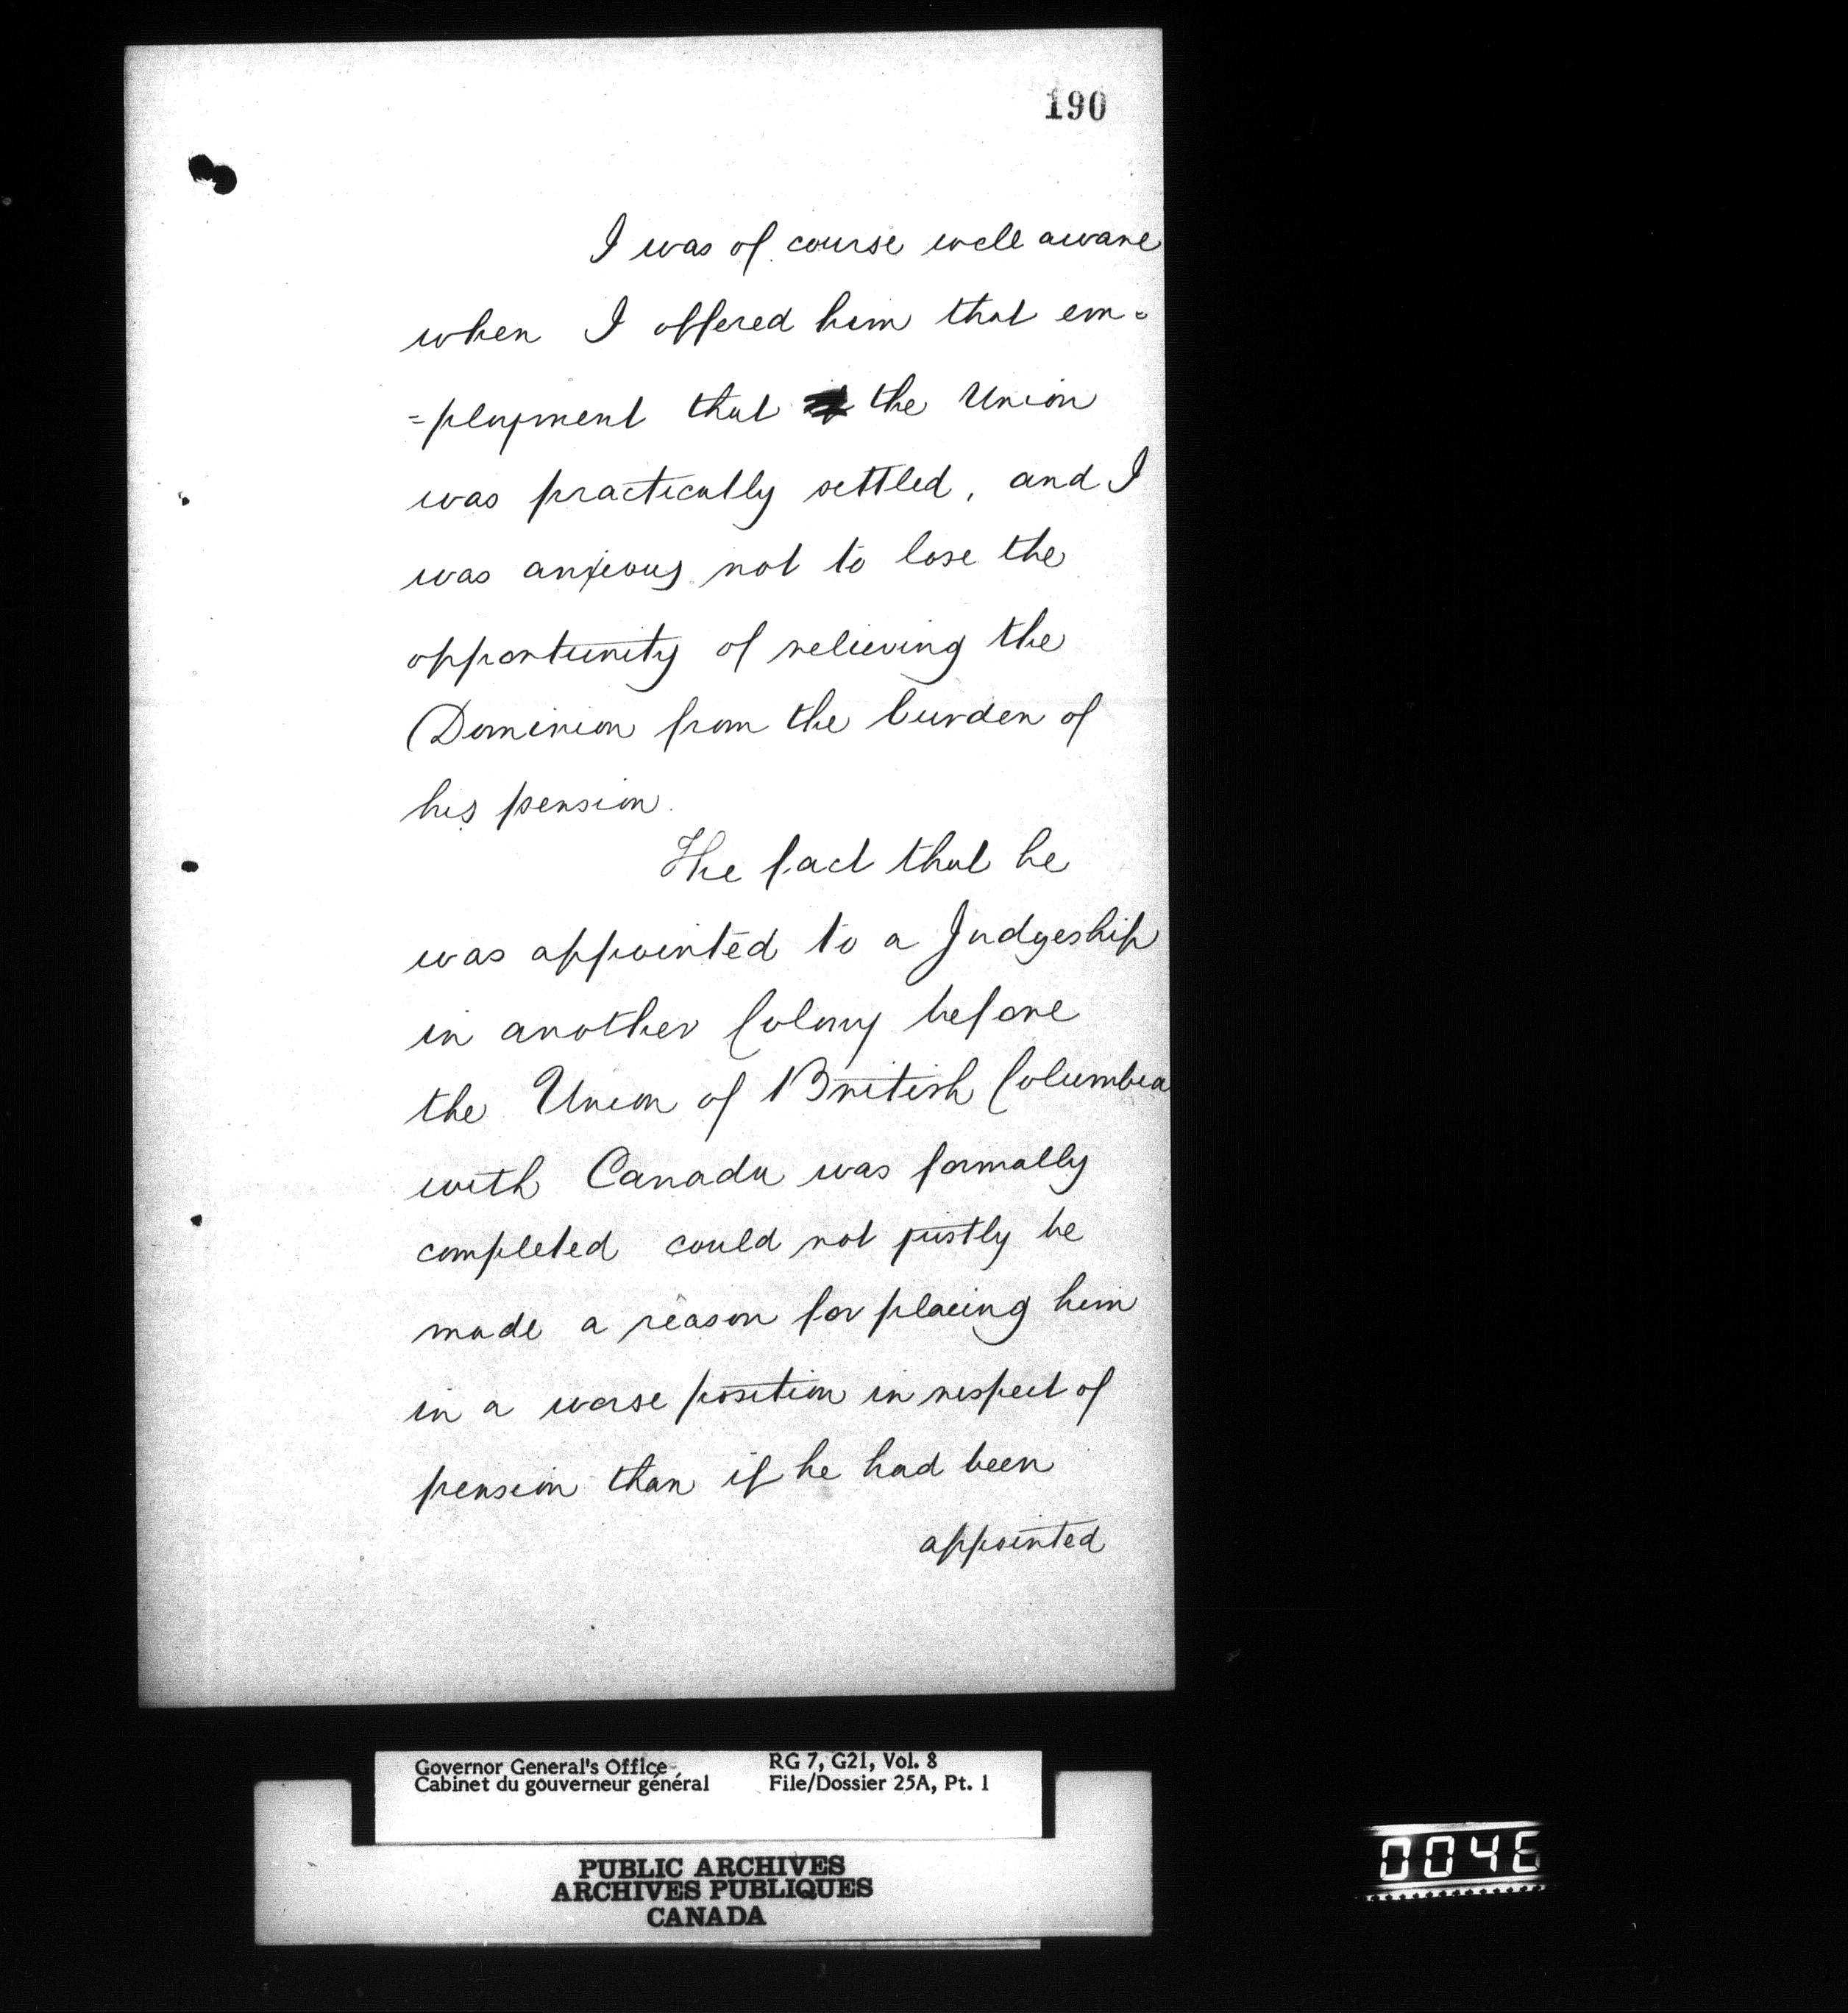 190
I was of course well aware
when I offered him that em-
=ployment that the Union
was practically settled, and I
was anxious not to lose the
opportunity of relieving the
Dominion from the burden of
his pension.
The fact that he
was appointed to a Judgeship
in another Colony before
the Union of British Columbia
with Canada was formally
completed could not justly be
made a reason for placing him
in a worse position in respect of
pension than if he had been
appointed
Governor General's Office
Cabinet du gouverneur général
RG 7, G21, Vol. 8
File/Dossier 25A, Pt. 1
PUBLIC ARCHIVES
ARCHIVES PUBLIQUES
CANADA